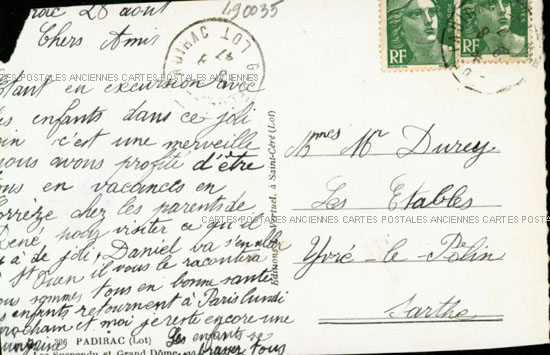 rac 28 août
190035
Chers Amis
PADIRAC LOT
RF
RF
étant en excursion avec
es enfants dans ce joli
in c'est une merveille
nous avons profité d'être
tous en vacances en
orrèze chez les parents de
René pour visiter ce qu'il
y a de joli, Daniel va s'en aller
St Ouen il vous le racontera
ous sommes tous en bonne santé
es enfants retournent à Paris lundi
prochain et moi je reste encore une
Les enfants se
tous
CARTES POSTALES ANCIENNES CARTES POSTALES ANCIENNES CARTES POSTALES ANCIENNES
CARTES POSTALES ANCIENNES CARTES POSTALES ANCIENNES CARTES POSTALES ANCIENNES
306 PADIRAC (Lot)
Lac Suspendu et Grand Dôme
Editions Vertuel, à Saint-Céré (Lot)
Mmes Mr Durey
Les Etables
Yvré-le-Polin
Sarthe